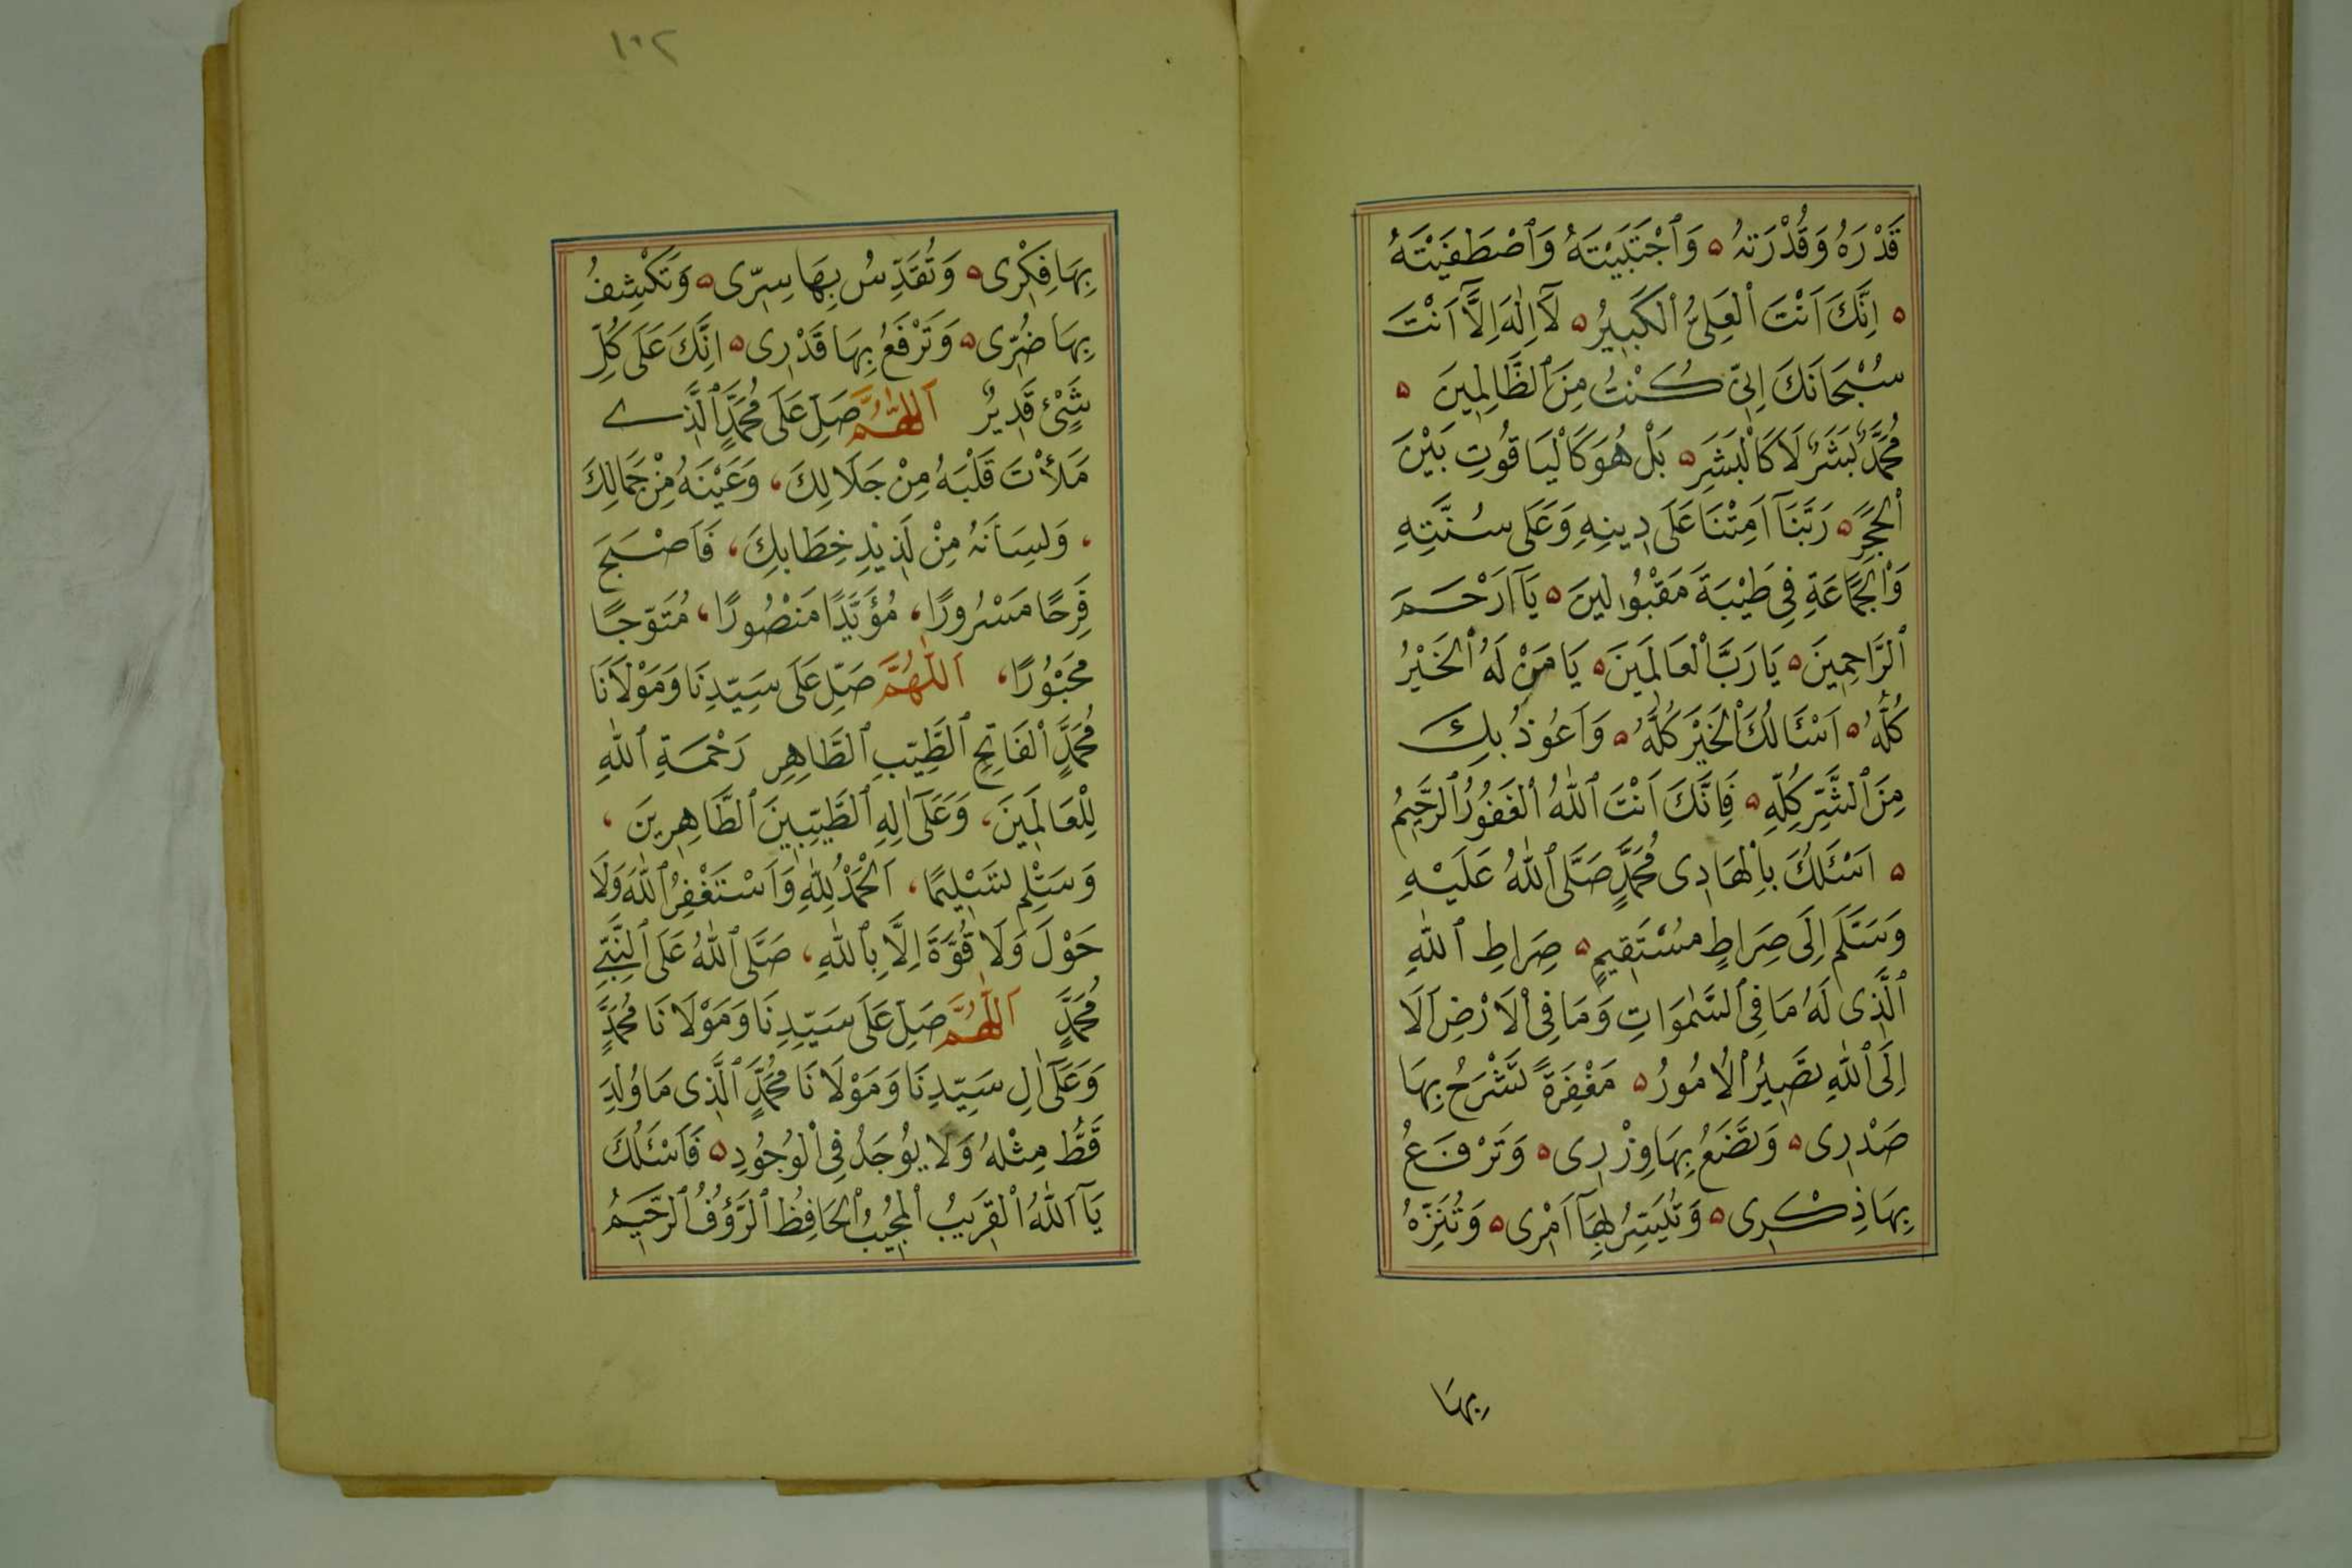 قَدْرَهُ وَقُدْرَتَهُ ۵ وَٱجْتَبَيْتَهُ وَٱصْطَفَيْتَهُ
۵ اِنَّكَ اَنْتَ ٱلْعَلِىُّ ٱلْكَبِيرُ ۵ لَآ اِلٰهَ اِلَّآ اَنْتَ
سُبْحَانَكَ اِنِّى كُنْتُ مِنَ ٱلظَّالِمِينَ ۵
مُحَمَّدٌ بَشَرٌ لَا كَالْبَشَرِ ۵ بَلْ هُوَ كَالْيَاقُوتِ بَيْنَ
ٱلْحَجَرِ ۵ رَبَّنَآ اَمِتْنَا عَلَى دِينِهِ وَعَلَى سُنَّتِهِ
وَٱلْجَمَاعَةِ فِى طَيْبَةَ مَقْبُولِينَ ۵ يَآ اَرْحَمَ
ٱلرَّاحِمِينَ ۵ يَا رَبَّ ٱلْعَالَمِينَ ۵ يَا مَنْ لَهُ ٱلْخَيْرُ
كُلُّهُ ۵ اَسْئَالُكَ ٱلْخَيْرَ كُلَّهُ ۵ وَاَعُوذُ بِكَ
مِنَ ٱلشَّرِّ كُلِّهِ ۵ فَاِنَّكَ اَنْتَ ٱللّٰهُ ٱلْغَفُورُ ٱلرَّحِيمُ
۵ اَسْئَلُكَ بِالْهَادِى مُحَمَّدٍ صَلَّى ٱللّٰهُ عَلَيْهِ
وَسَلَّمَ اِلَى صِرَاطٍ مُسْتَقِيمٍ ۵ صِرَاطِ ٱللّٰهِ
ٱلَّذِى لَهُ مَا فِى ٱلسَّمٰوَاتِ وَمَا فِى ٱلْاَرْضِ اَلَا
اِلَى ٱللّٰهِ تَصِيرُ ٱلْاُمُورُ ۵ مَغْفِرَةً تَشْرَحُ بِهَا
صَدْرِى ۵ وَتَضَعُ بِهَا وِزْرِى ۵ وَتَرْفَعُ
بِهَا ذِكْرِى ۵ وَتُيَسِّرُ بِهَآ اَمْرِى ۵ وَتُنَزِّهُ
بِهَا
١٠٢
بِهَا فِكْرِى ۵ وَتُقَدِّسُ بِهَا سِرِّى ۵ وَتَكْشِفُ
بِهَا ضُرِّى ۵ وَتَرْفَعُ بِهَا قَدْرِى ۵ اِنَّكَ عَلَى كُلِّ
شَىْءٍ قَدِيرٌ اَللّٰهُمَّ صَلِّ عَلَى مُحَمَّدٍ ٱلَّذِے
مَلَأْتَ قَلْبَهُ مِنْ جَلَالِكَ ، وَعَيْنَهُ مِنْ جَمَالِكَ
، وَلِسَانَهُ مِنْ لَذِيذِ خِطَابِكَ ، فَاَصْبَحَ
فَرِحًا مَسْرُورًا ، مُؤَيَّدًا مَنْصُورًا ، مُتَوَّجًا
مَحْبُورًا ، اَللّٰهُمَّ صَلِّ عَلَى سَيِّدِنَا وَمَوْلَانَا
مُحَمَّدٍ ٱلْفَاتِحِ ٱلطَّيِّبِ ٱلطَّاهِرِ رَحْمَةِ ٱللّٰهِ
لِلْعَالَمِينَ ، وَعَلَىٓ اٰلِهِ ٱلطَّيِّبِينَ ٱلطَّاهِرِينَ ،
وَسَلِّمْ تَسْلِيمًا ، اَلْحَمْدُ لِلّٰهِ وَاَسْتَغْفِرُ ٱللّٰهَ وَلَا
حَوْلَ وَلَا قُوَّةَ اِلَّا بِٱللّٰهِ ، صَلَّى ٱللّٰهُ عَلَى ٱلنَّبِىِّ
مُحَمَّدٍ اَللّٰهُمَّ صَلِّ عَلَى سَيِّدِنَا وَمَوْلَانَا مُحَمَّدٍ
وَعَلَىٓ اٰلِ سَيِّدِنَا وَمَوْلَانَا مُحَمَّدٍ ٱلَّذِى مَا وُلِدَ
قَطُّ مِثْلُهُ وَلَا يُوجَدُ فِى ٱلْوُجُودِ ۵ فَاَسْئَلُكَ
يَآ اَللّٰهُ ٱلْقَرِيبُ ٱلْمُجِيبُ ٱلْحَافِظُ ٱلرَّؤُفُ ٱلرَّحِيمُ